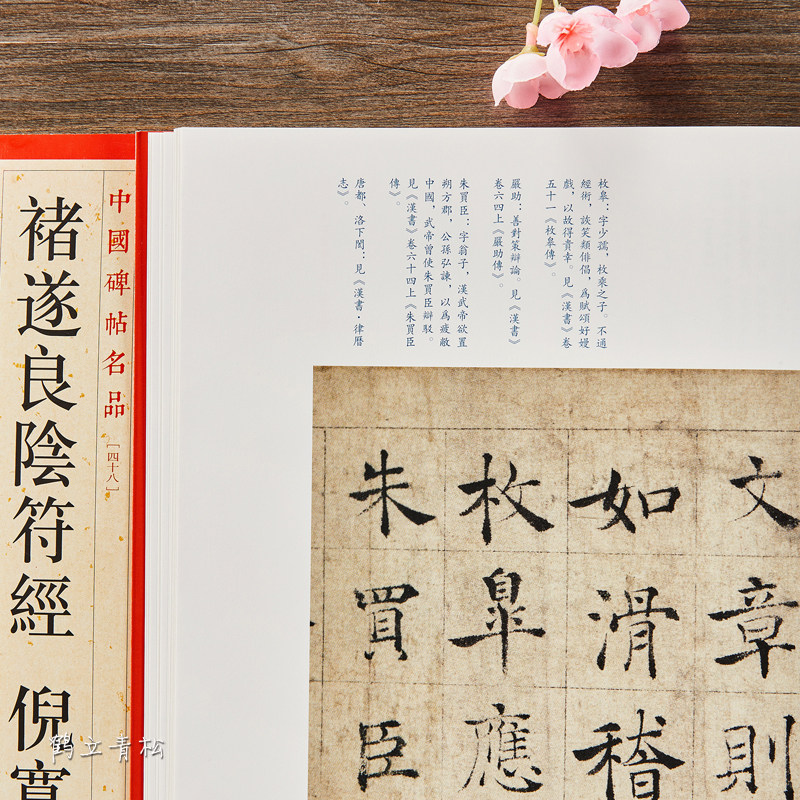 中國碑帖名品
［四十八］
褚遂良陰符經 倪寬
枚皋：字少孺，枚乘之子。不通
經術，詼笑類俳倡，爲賦頌好嫚
戲，以故得貴幸。見《漢書》卷
五十一《枚皋傳》。
嚴助：善對策辯論。見《漢書》
卷六四上《嚴助傳》。
朱買臣：字翁子，漢武帝欲置
朔方郡，公孫弘諫，以爲疲敝
中國，武帝曾使朱買臣辯駁。
見《漢書》卷六十四上《朱買臣
傳》。
唐都、洛下閎：見《漢書·律曆
志》。
文章則
如滑稽
枚皋應
朱買臣
鹤立青松